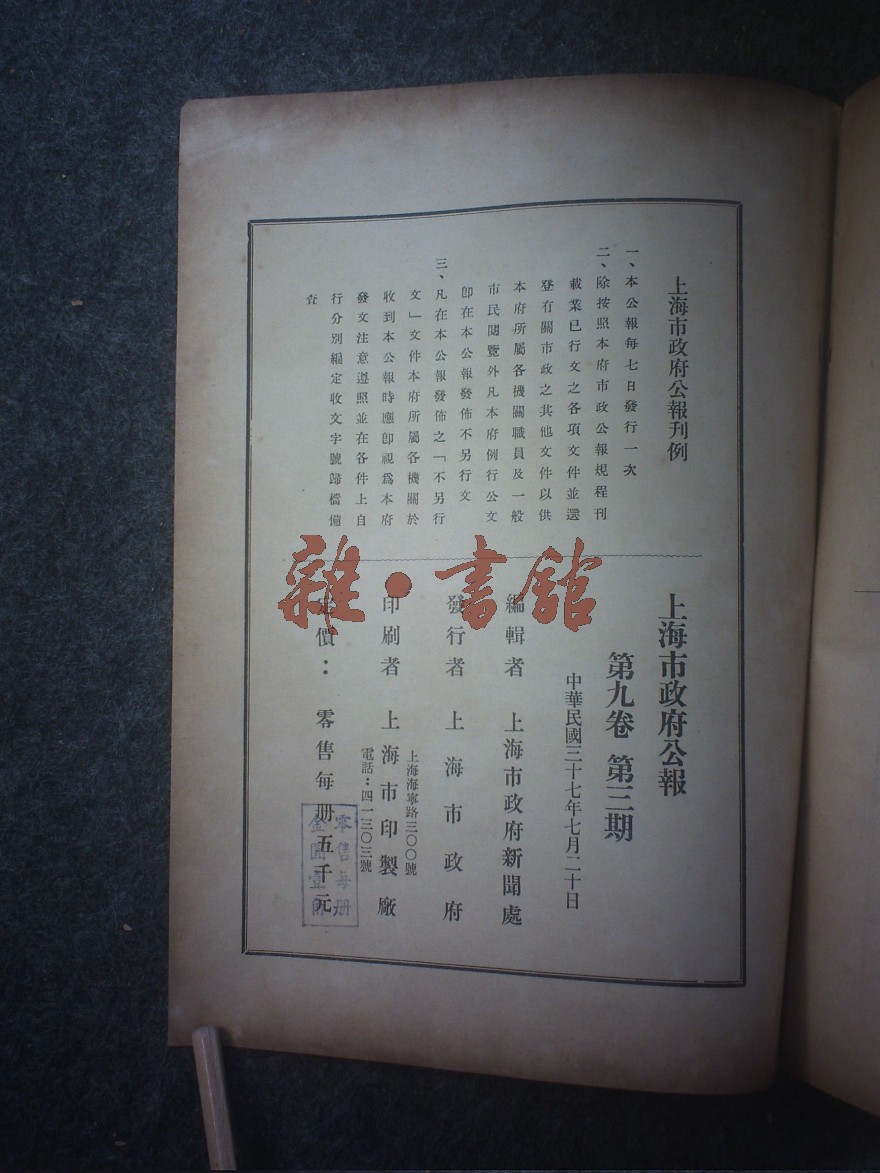 上海市政府公報刊例
一、本公報每七日發行一次
二、除按照本府市政公報規程刊
載業已行文之各項文件並選
登有關市政之其他文件以供
本府所屬各機關職員及一般
市民閱覽外凡本府例行公文
卽在本公報發佈不另行文
三、凡在本公報發佈之「不另行
文」文件本府所屬各機關於
收到本公報時應卽視爲本府
發文注意遵照並在各件上自
行分別編定收文字號歸檔備
查
上海市政府公報
第九卷 第三期
中華民國三十七年七月二十日
編輯者 上海市政府新聞處
發行者 上海市政府
上海海寧路三〇〇號
印刷者 上海市印製廠
電話：四一三〇三號
定價： 零售每册五千元
零售每册
金圓壹角
雜·書館